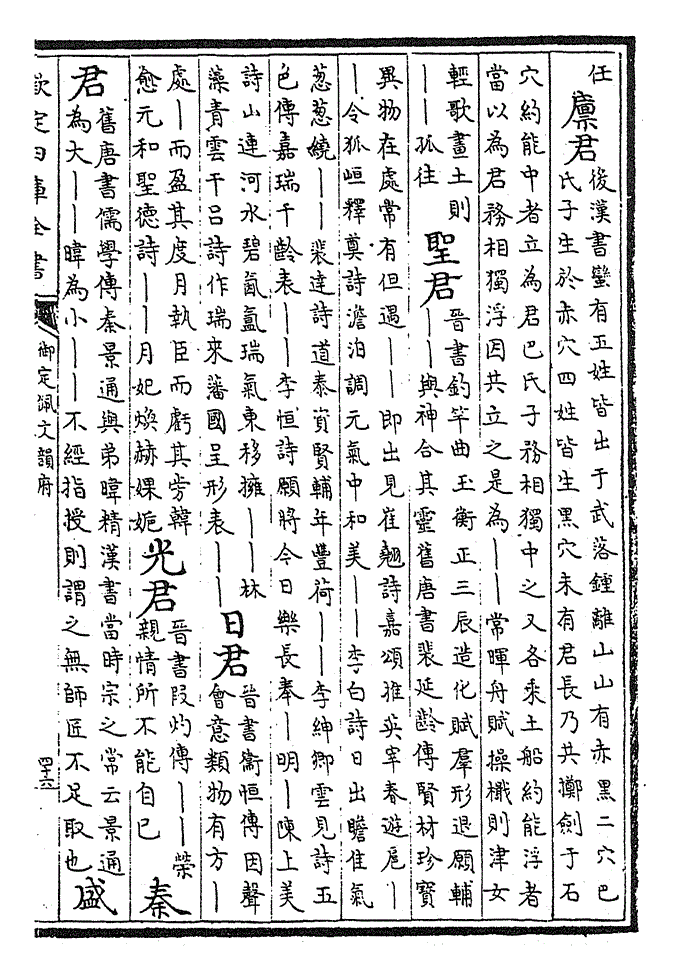 任
廩君
後漢書蠻有五姓皆出于武落鍾離山山有赤黑二穴巴
氏子生於赤穴四姓皆生黑穴未有君長乃共擲劍于石
穴約能中者立為君巴氏子務相獨中之又各乘土船約能浮者
當以為君務相獨浮因共立之是為——常暉舟賦操檝則津女
輕歌畫土則
——孤往
聖君
晉書鈞竿曲玉衡正三辰造化賦羣形退願輔
——與神合其靈舊唐書裴延齡傳賢材珍寶
異物在處常有但遇——即出見崔翹詩嘉頌推英宰春遊扈—
—令狐峘釋奠詩澹泊調元氣中和美——李白詩日出瞻佳氣
葱葱繞——裴逹詩道泰資賢輔年豐荷——李紳卿雲見詩五
色傳嘉瑞千齡表——李恒詩願將今日樂長奉—明—陳上美
詩山連河水碧氤氲瑞氣東移擁——林
藻青雲干呂詩作瑞來藩國呈形表——
日君
晉書衞恒傳因聲
會意類物有方—
處—而盈其度月執臣而虧其旁韓
愈元和聖德詩——月妃煥赫婐㛂
光君
晉書叚灼傳——榮
親情所不能自已
秦
君
舊唐書儒學傳秦景通與弟暐精漢書當時宗之常云景通
為大——暐為小——不經指授則謂之無師匠不足取也
盛
欽定四庫全書
御定佩文韻府
四十六